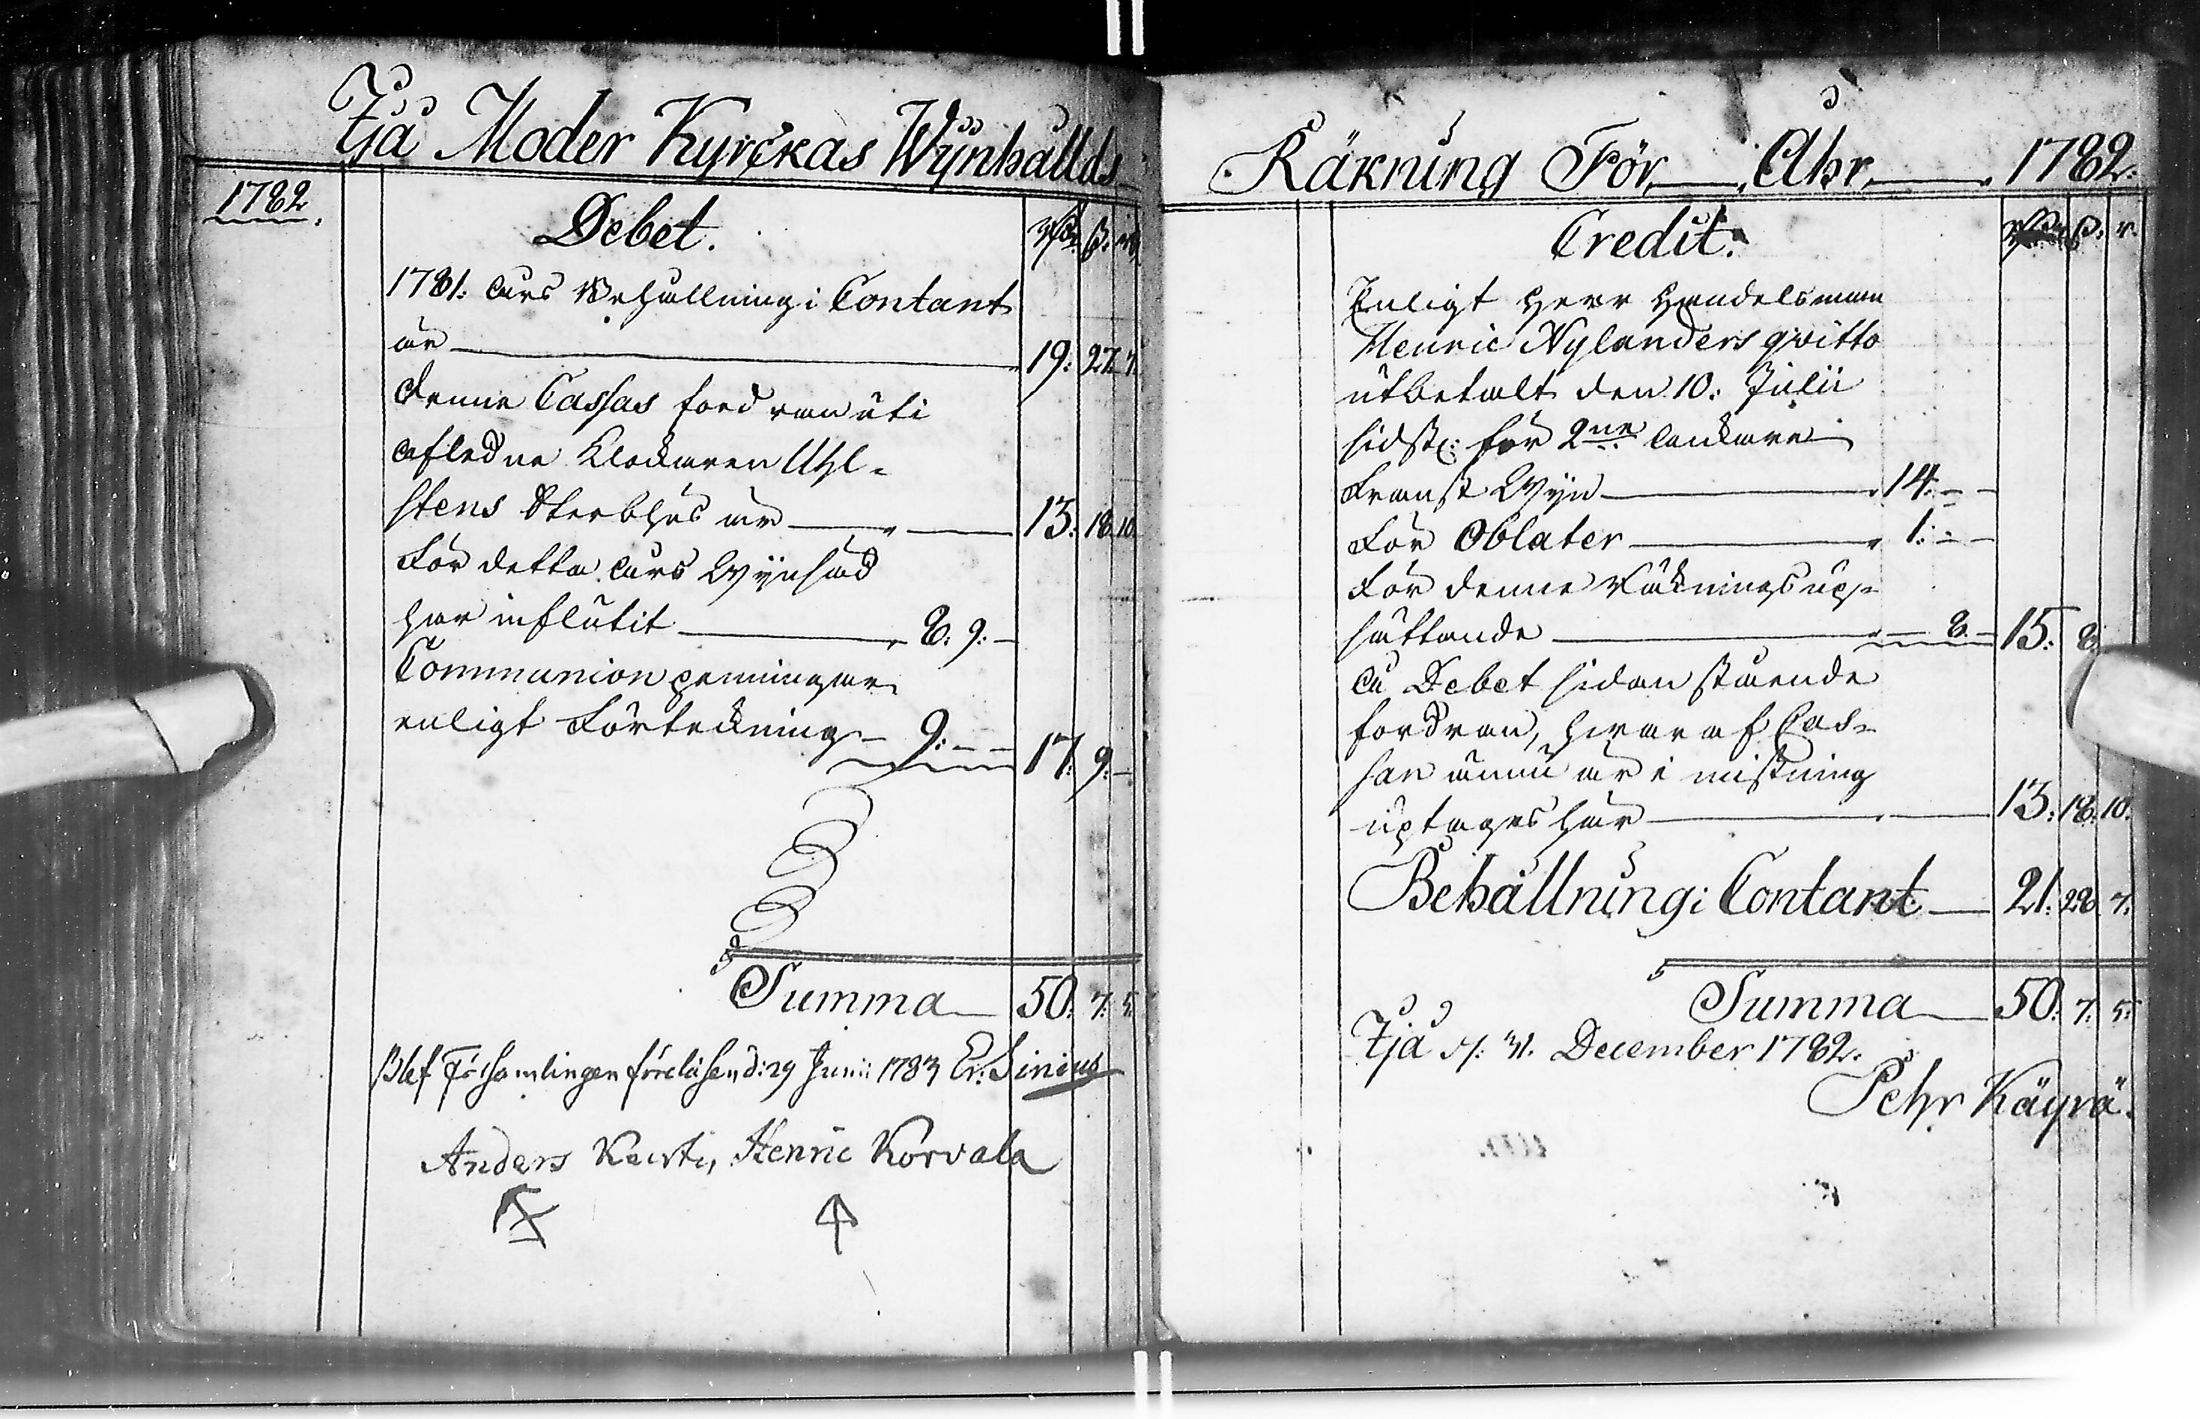 Ijå Moder Kyrckas Wijnhålds
1782.
Debet.
Rdr ß. r.
1781. åhrs Behållning i Contant
är 19: 27: 7.
denne Cassas fordran uti
afledne Klockaren Uhl-
stens Sterbhus är 13: 18. 10.
För detta åhrs Wijnsäd
har influtit 8: 9: —
Communion penningar
enligt Förteckning 9: — — 17: 9: —
Summa 50: 7: 5.
Blef Församlingen föreläsen d: 29 Junii 1783 Er: Sinius
Anders Henric Korvala
Räkning För Åhr 1782.
Credit.
Rdr ß. r.
Enligt Herr Handelsman
Henric Nylanders qvitto
utbetalt den 10: Julii
sidstl: för 2ne anckare
Fransk Wijn 14: — —
För Oblater 1: — —
För denne Räknings up-
sättande — 8. — 15: 8
Å Debet sidan stående
fordran, hwaraf Cas-
san ännu är i mistning
uptages här 13: 18: 10.
Behållning i Contant 21: 28. 7.
Summa 50: 7: 5.
Ijå d. 31. December 1782.
Pehr Käyrä.